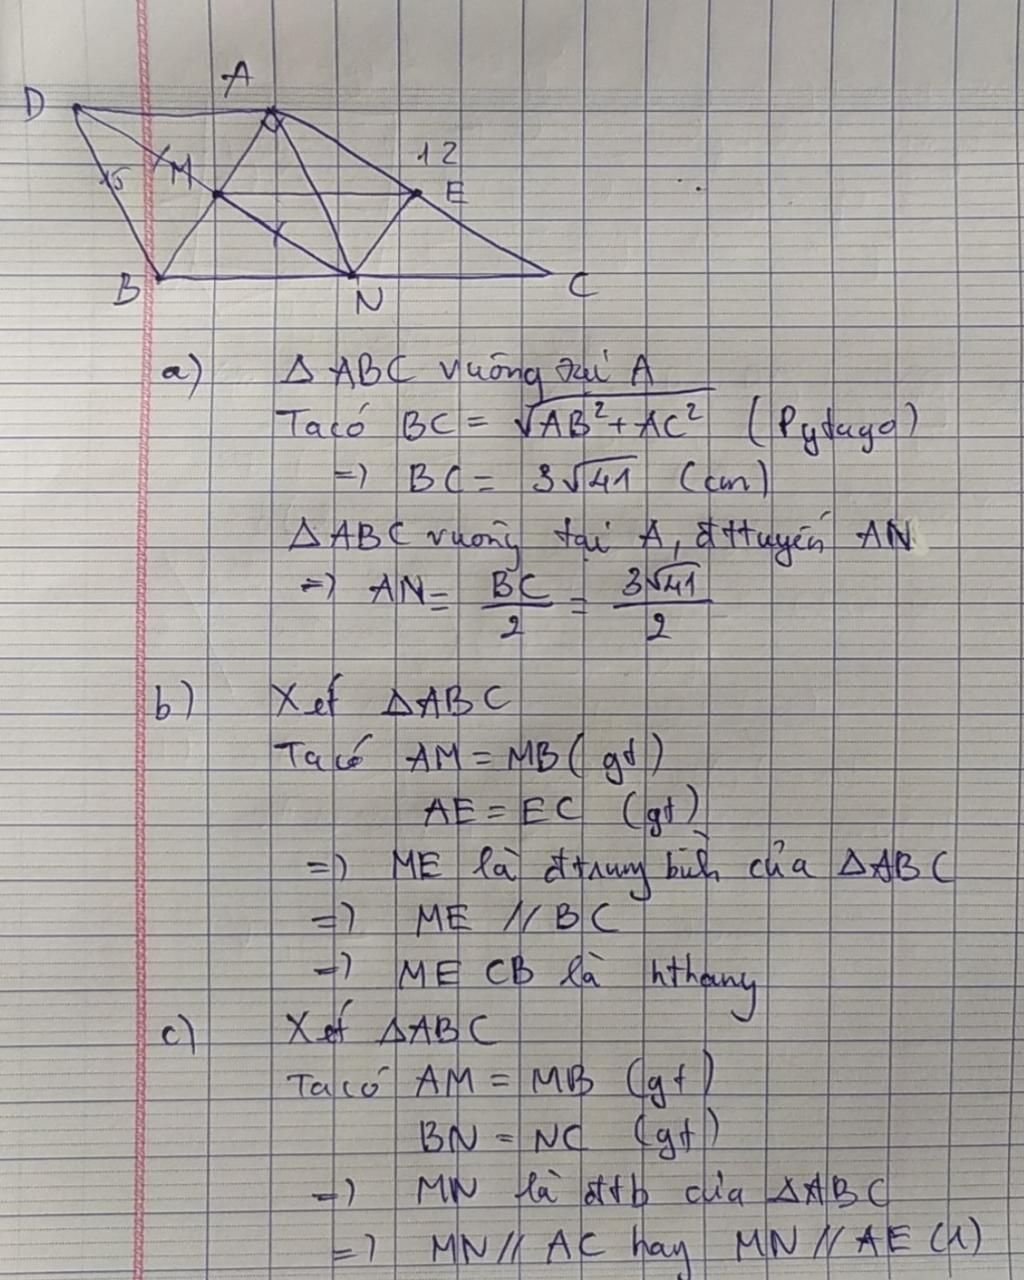 D
A
12
M
E
15
B
N
C
a) Δ ABC vuông tại A
Ta có BC = √AB² + AC² (Pytago)
=) BC = 3√41 (cm)
Δ ABC vuông tại A, đttuyến AN
=) AN = BC/2 = 3√41/2
b) Xét ΔABC
Ta có AM = MB (gt)
AE = EC (gt)
=) ME là đtrung bình của ΔABC
=) ME // BC
=) MECB là hthang
c) Xét ΔABC
Ta có AM = MB (gt)
BN = NC (gt)
=) MN là đtb của ΔABC
=) MN // AC hay MN // AE (1)